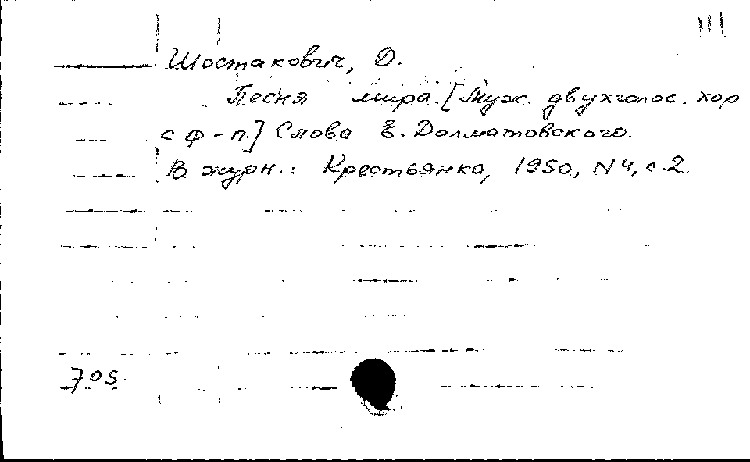 III
Шостакович, Д.
Песня мира. [Муж. двухголос. хор
с ф-п.] Слова Е. Долматовского.
В журн.: Крестьянка, 1950, N4, с.2.
705